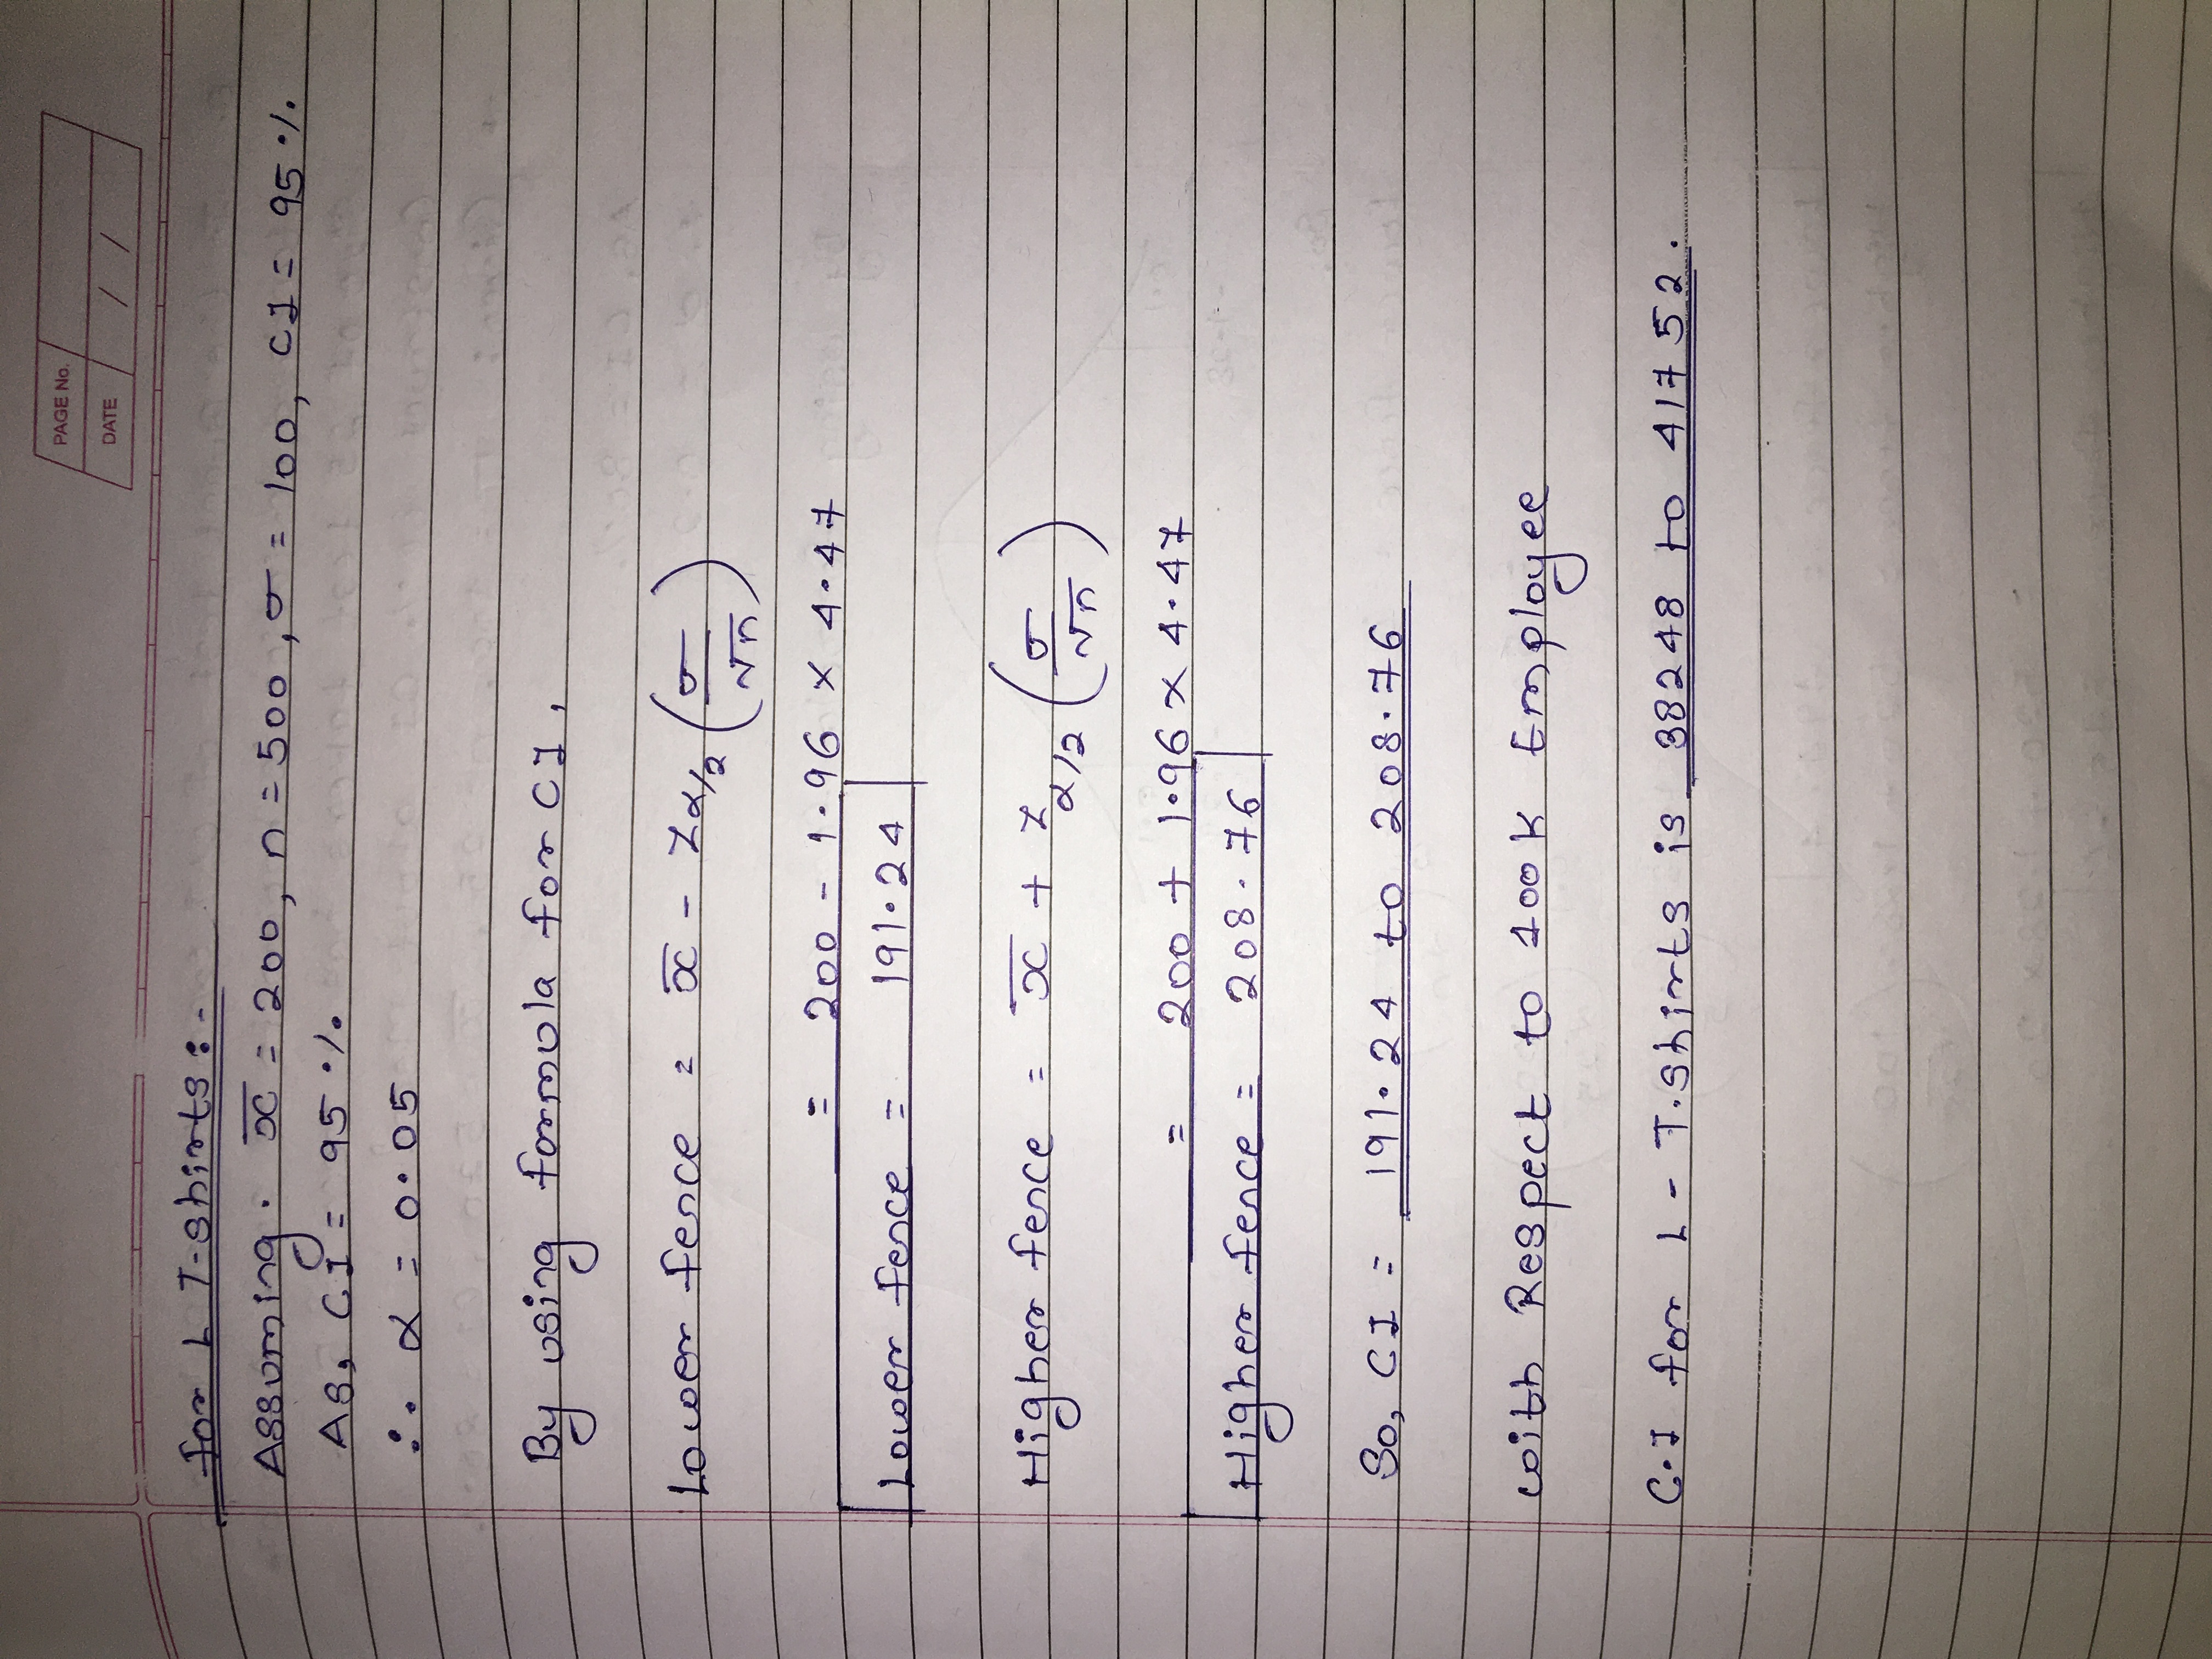 PAGE No.
DATE / /
for L T-shirts :-
Assuming. x̄ = 200, n = 500, σ = 100, CI = 95 %
As, CI = 95 %
∴ α = 0.05
By using formula for CI,
Lower fence = x̄ - Zα/2 (σ/√n)
= 200 - 1.96 × 4.47
Lower fence = 191.24
Higher fence = x̄ + Zα/2 (σ/√n)
= 200 + 1.96 × 4.47
Higher fence = 208.76
So, CI = 191.24 to 208.76
with Respect to 100K Employee
C.I for L - T.shirts is 38248 to 41752.